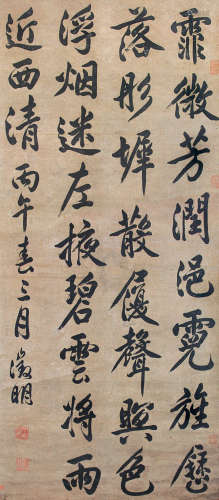 霏微芳潤浥霓旌歷
落彤墀散履聲暝色
浮烟迷左掖碧雲將雨
近西清丙午春三月徵明